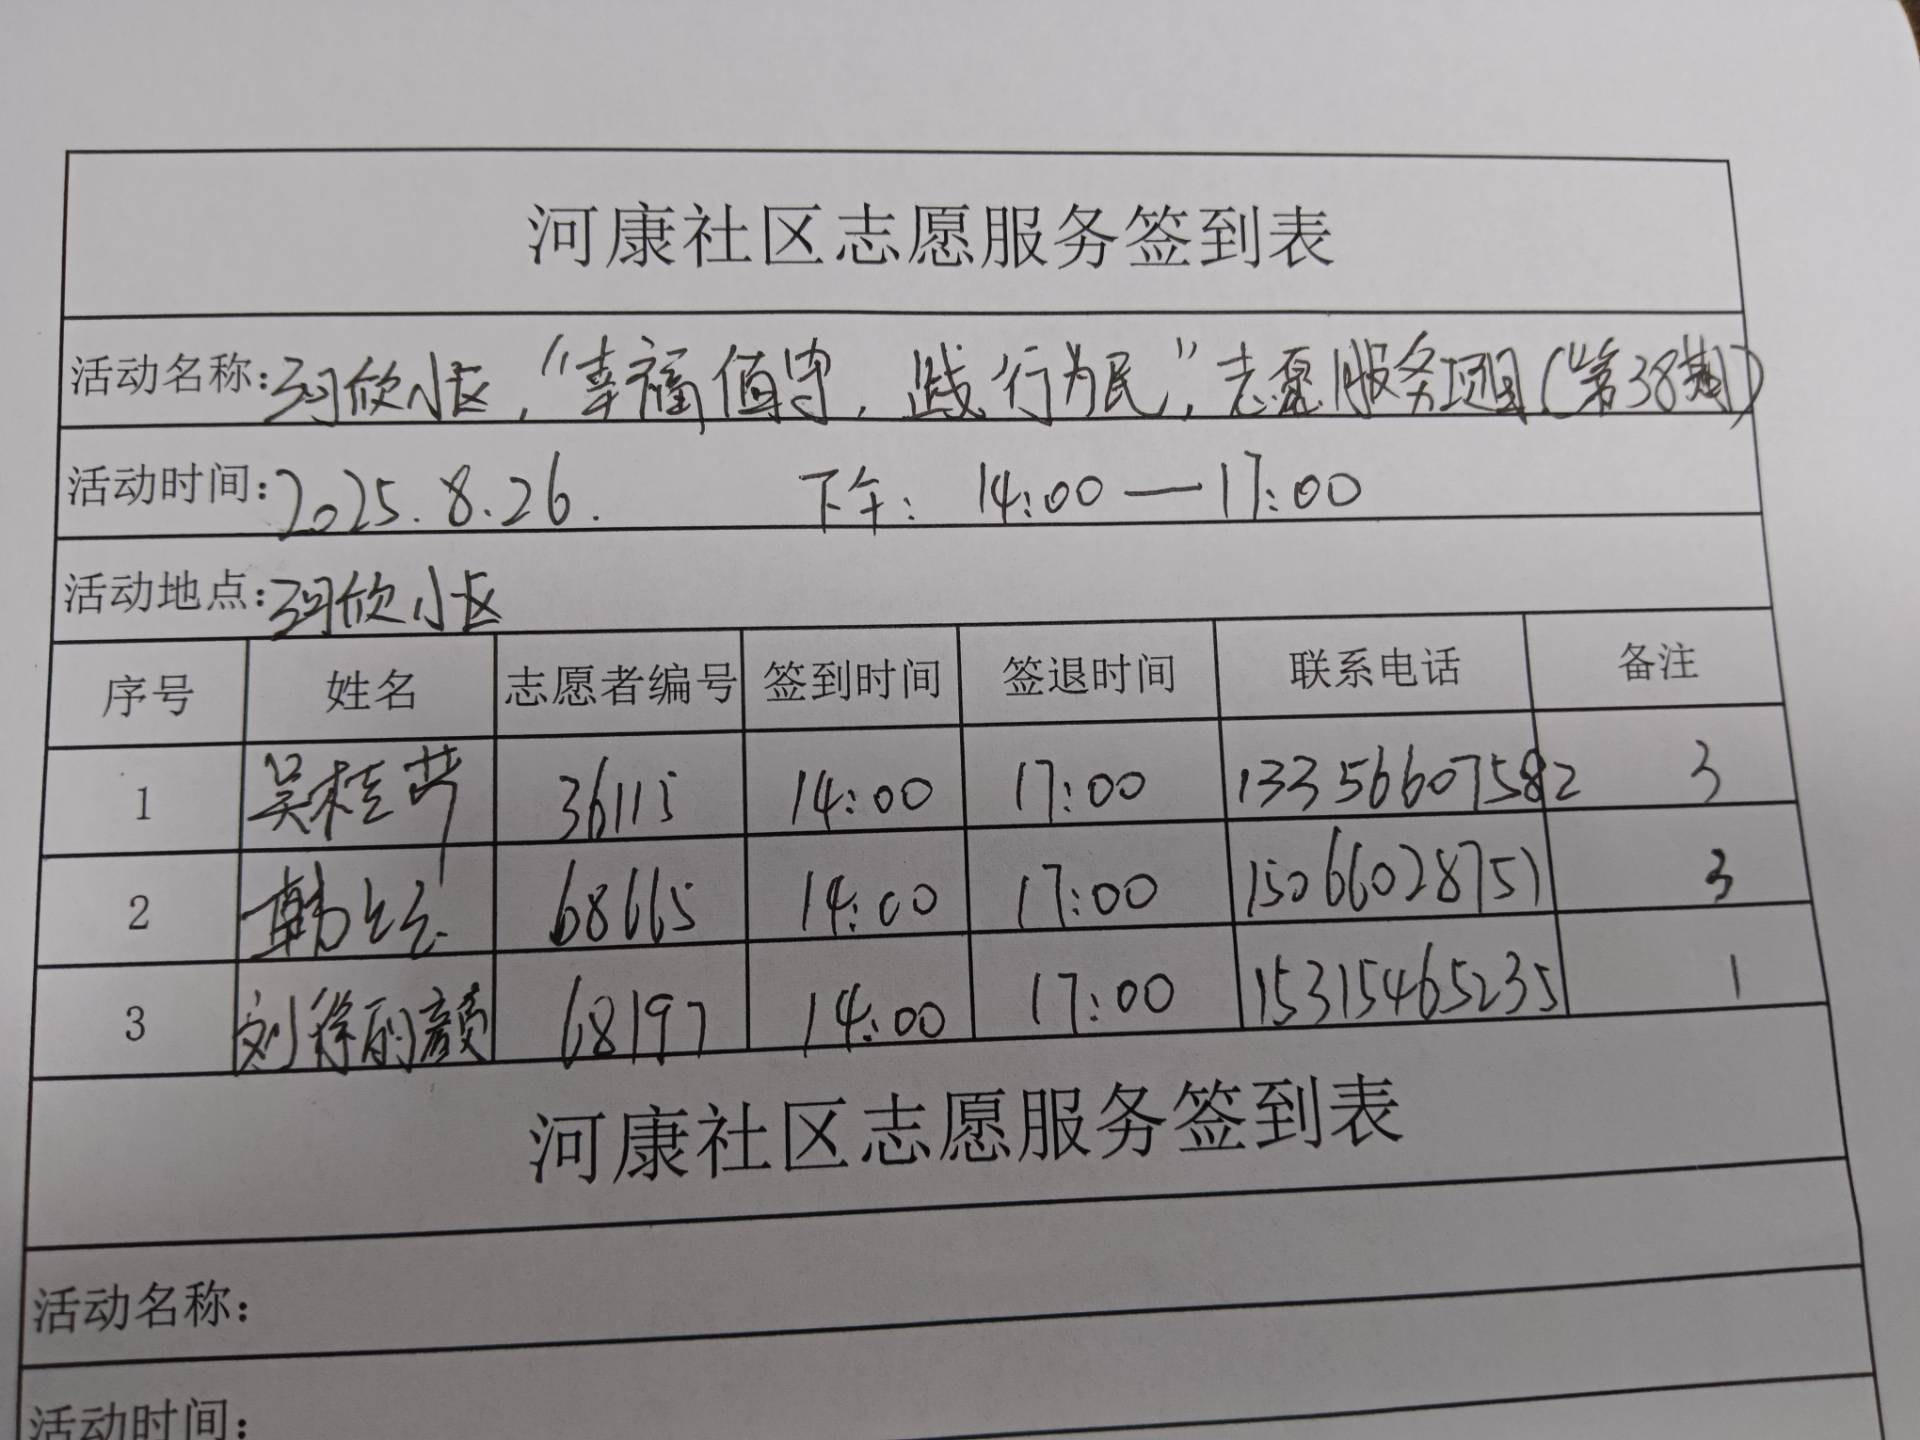 河康社区志愿服务签到表
活动名称:河欣小区,“幸福值守,践行为民”,志愿服务项目(第38期)
活动时间:2025.8.26. 下午: 14:00—17:00
活动地点:河欣小区
序号 姓名 志愿者编号 签到时间 签退时间 联系电话 备注
1 吴桂芹 36115 14:00 17:00 13356607582 3
2 韩 68665 14:00 17:00 15066028751 3
3 刘徐雨颜 68197 14:00 17:00 15315465235 1
河康社区志愿服务签到表
活动名称:
活动时间: